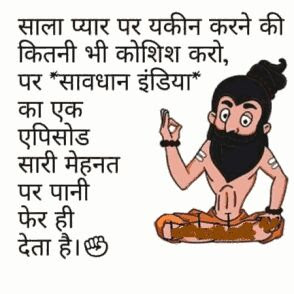 साला प्यार पर यकीन करने की
कितनी भी कोशिश करो,
पर *सावधान इंडिया*
का एक
एपिसोड
सारी मेहनत
पर पानी
फेर ही
देता है।✊